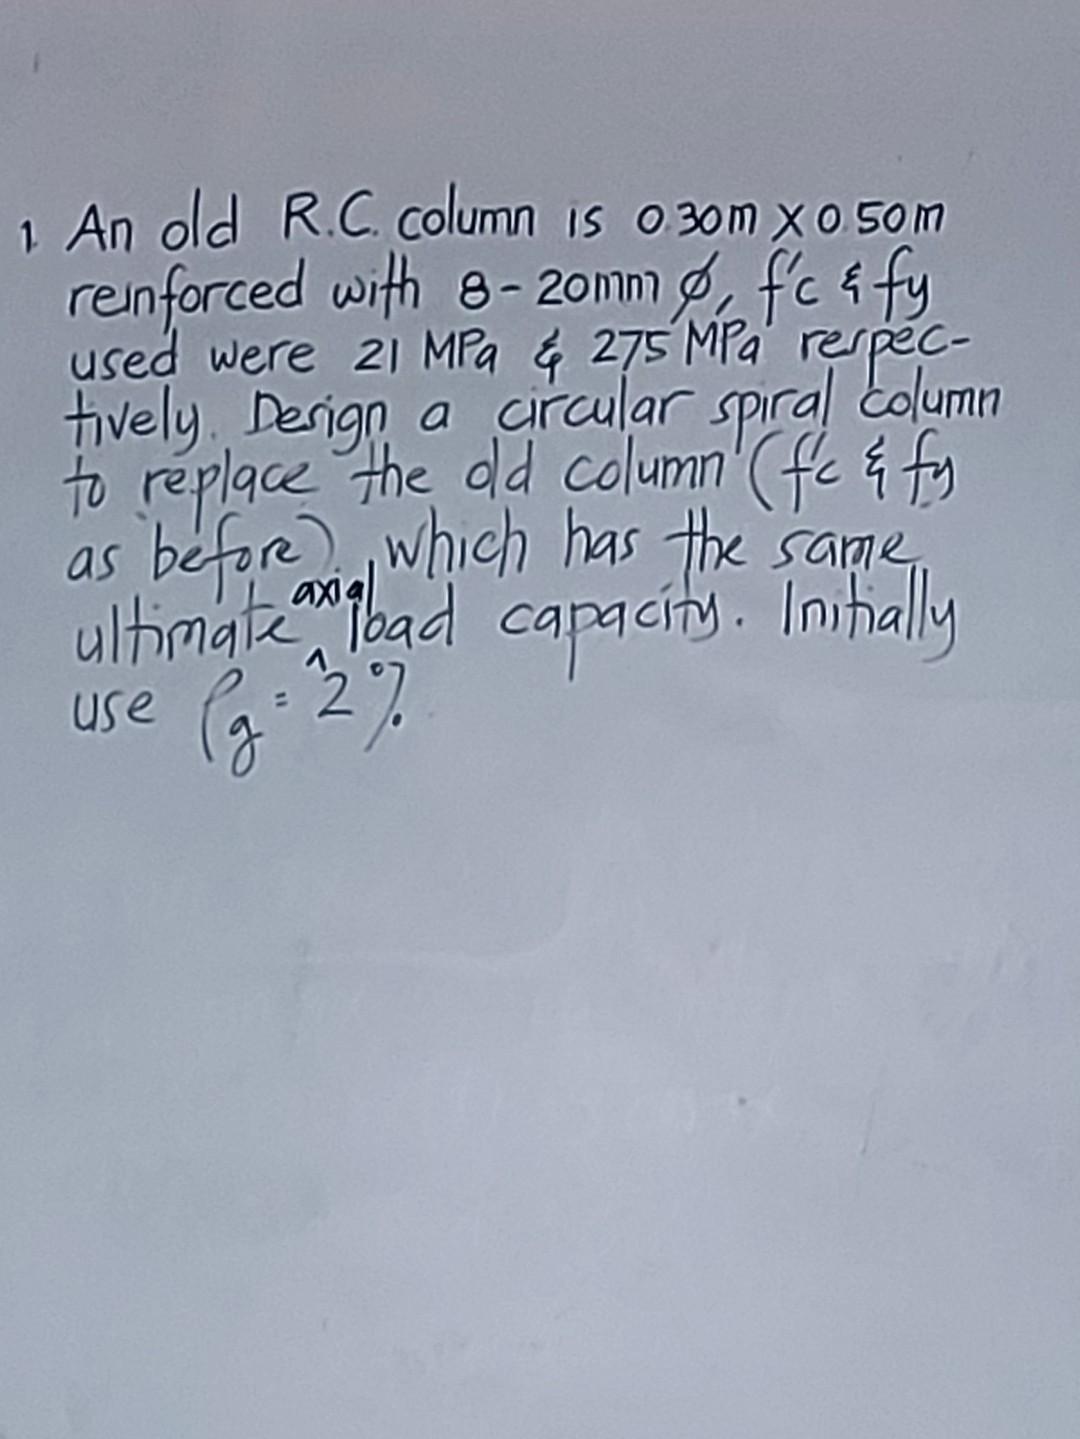 1. An old R.C. column is 0.30m x 0.50m
reinforced with 8-20mm ∅, f'c & fy
used were 21 MPa & 275 MPa respec-
tively. Design a circular spiral column
to replace the old column (f'c & fy
as before), which has the same
ultimate axial load capacity. Initially
use ρg = 2%